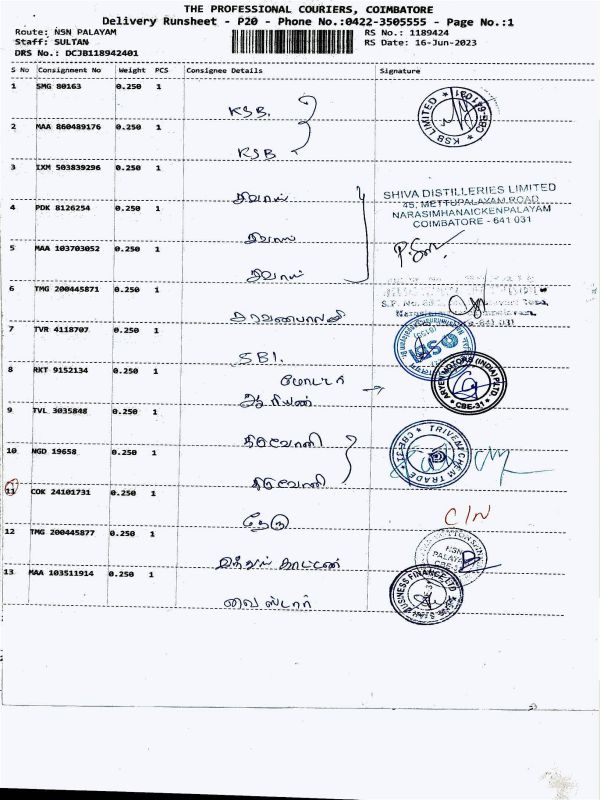 THE PROFESSIONAL COURIERS, COIMBATORE
Delivery Runsheet - P20 - Phone No.:0422-3505555 - Page No.:1
Route: NSN PALAYAM RS No.: 1189424
Staff: SULTAN RS Date: 16-Jun-2023
DRS No.: DCJB118942401
S No Consignment No Weight PCS Consignee Details Signature
1 SMG 80163 0.250 1
KSB.
KSB LIMITED CBE-641 031
2 MAA 860489176 0.250 1
KSB
3 IXM 503839296 0.250 1
சிவாஸ்
SHIVA DISTILLERIES LIMITED
45, METTUPALAYAM ROAD
NARASIMHANAICKENPALAYAM
COIMBATORE - 641 031
4 PDK 8126254 0.250 1
சிவாஸ்
5 MAA 103703052 0.250 1
சிவாஸ்
6 TMG 200445871 0.250 1
7 TVR 4118707 0.250 1
SBI.
8 RKT 9152134 0.250 1
மோட்டார்
ஆரியன்
ARYEN MOTORS (INDIA) P LTD CBE-31
9 TVL 3035848 0.250 1
திரிவேணி
TRIVENI CHEM TRADE CBE-31
10 NGD 19658 0.250 1
திரிவேணி
11 COK 24101731 0.250 1
C/N
12 TMG 200445877 0.250 1
காட்டன்
NSN
PALAYAM
CBE-
13 MAA 103511914 0.250 1
வை ஸ்டார்
BUSINESS FINANCE LTD